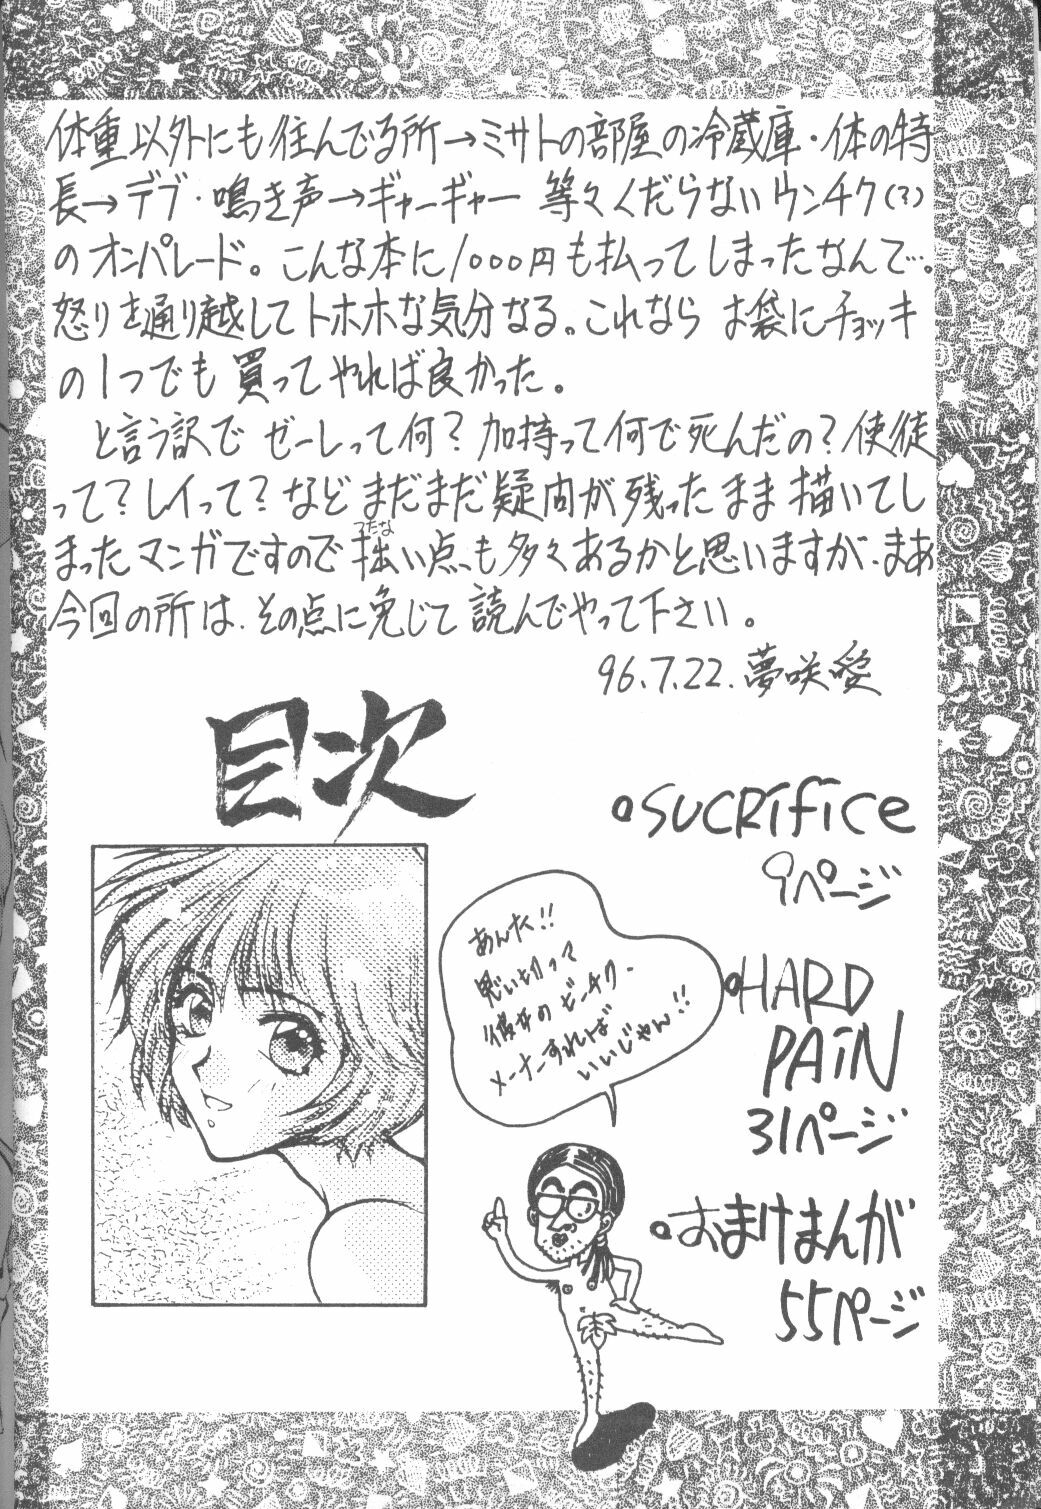 体重以外にも住んでる所→ミサトの部屋の冷蔵庫・体の特
長→デブ・鳴き声→ギャーギャー 等々くだらないウンチク(?)
のオンパレード。こんな本に1000円も払ってしまったなんて…。
怒りを通り越してトホホな気分なる。これなら お袋にチョッキ
の1つでも買ってやれば良かった。
と言う訳で ゼーレって何?加持って何で死んだの?使徒
って?レイって?などまだまだ疑問が残ったまま描いてし
まったマンガですので拙い点も多々あるかと思いますが、まあ
つたな
今回の所は、その点に免じて読んでやって下さい。
96.7.22.夢咲愛
目次
SUCRifice
9ページ
あんた!!
思い切って
彼女のビーチク
すれば
いいじゃん!!
HARD
PAiN
31ページ
おまけまんが
55ページ